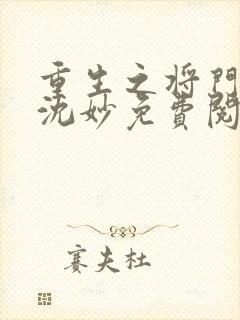 重生之将門
沈妙免費閱
赛夫杜